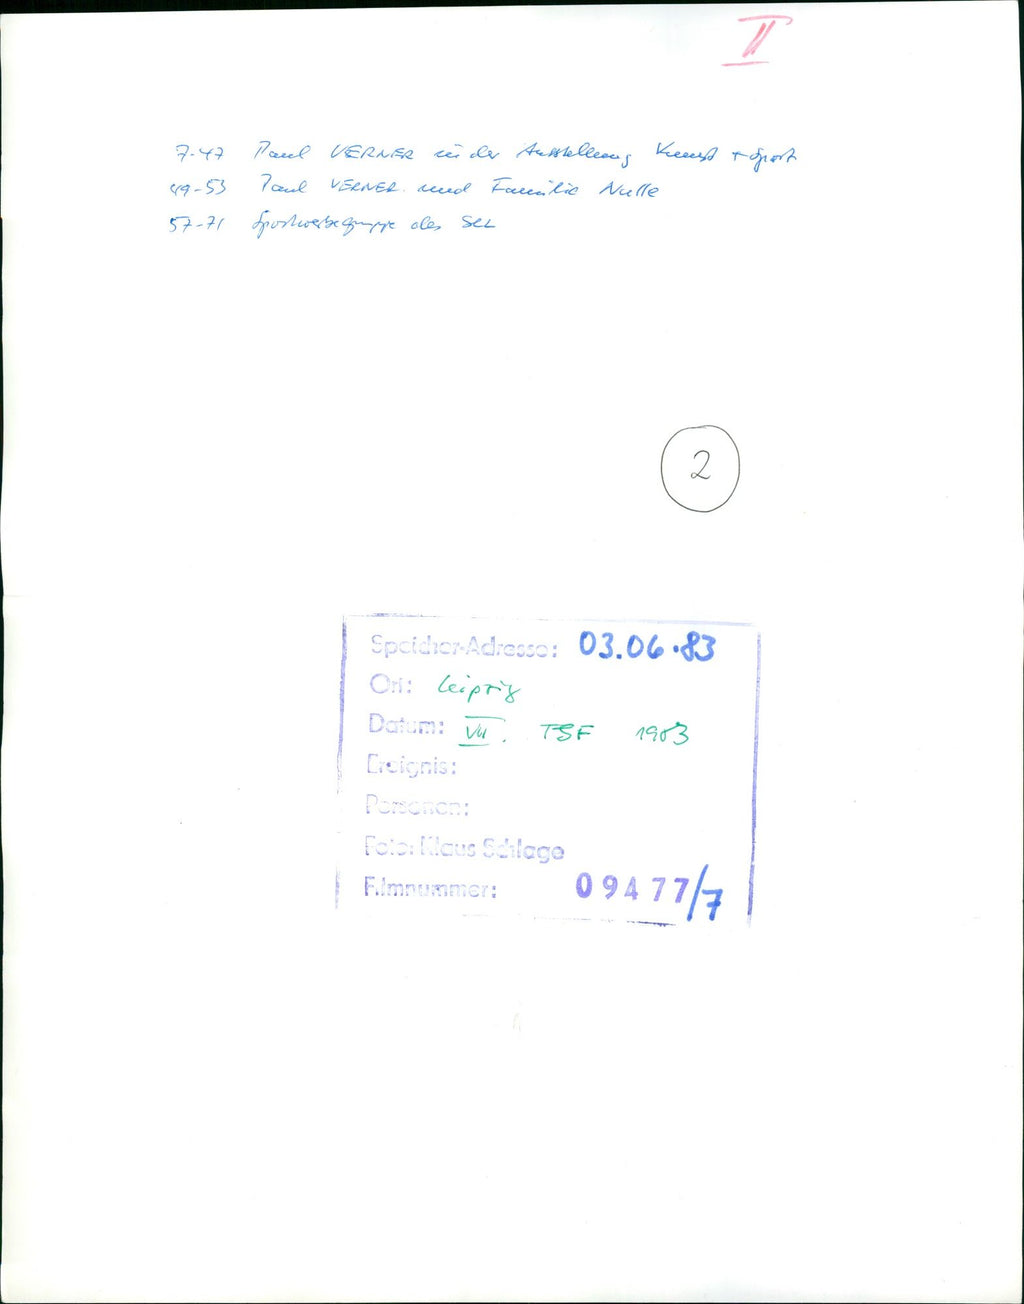 II
7-47 Paul VERNER in der Ausstellung Kunst + Sport
49-53 Paul VERNER und Familie Nulle
57-71 Sportwerbegruppe des SCL
2
Speicher-Adresse: 03.06.83
Ort: Leipzig
Datum: VII. TSF 1983
Ereignis:
Personen:
Foto: Klaus Schlage
Filmnummer: 09477/7